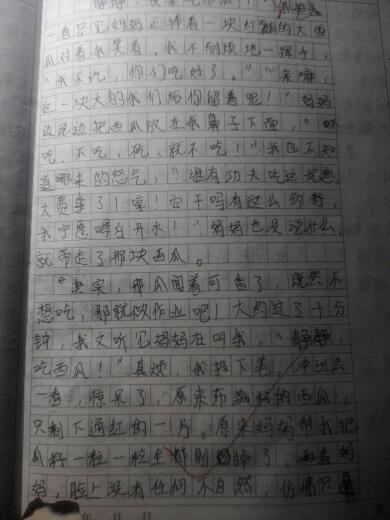 一看只见妈妈正捧着一块红红的大西
瓜对着我笑着。我不耐烦地一挥手，
"我不吃，你们吃好了。""来嘛，
这一块大的我们给你留着呢！"妈妈
边说边把西瓜放在我鼻子下面，"不
吃，不吃，哼，就不吃！"我也不知
道哪来的怒气，"谁有功夫吃这玩意，
太费事了！哼！它干吗有这么多籽，
我宁愿喝白开水！"妈妈也没说什么，
就带走了那块西瓜。
"其实，那瓜闻着可香了，既然不
想吃，那就做作业吧！大约过了十分
钟，我又听见妈妈在叫我，"静静，
吃西瓜！"真烦，我扔下笔，冲出去
一看，惊呆了，原来布满籽的西瓜，
只剩下通红的一片。原来妈妈帮我把
瓜籽一粒一粒全都剔掉了，再看妈
妈，脸上没有任何不自然，仿佛只是
年 月 日